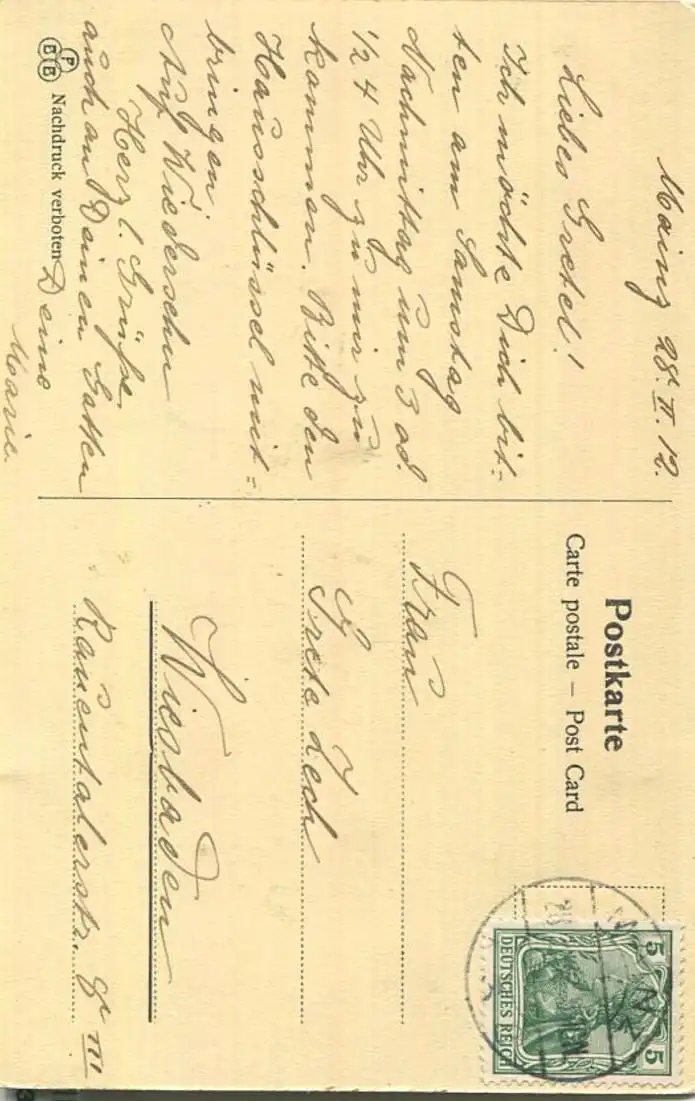 Mainz 28. II. 12.
Liebes Gretel!
Ich möchte Dich bit-
ten am Samstag
Nachmittag um 3 od.
1/2 4 Uhr zu mir zu
kommen. Bitte den
Hausschlüssel mit=
bringen.
Auf Wiedersehn
Herzl. Grüße
auch an Deinen Gatten
Deine
Marie.
PBB
Nachdruck verboten
Postkarte
Carte postale – Post Card
Frau
Grete Zech
Wiesbaden
Rauentalerstr. 9 III
5 5
DEUTSCHES REICH
MAINZ